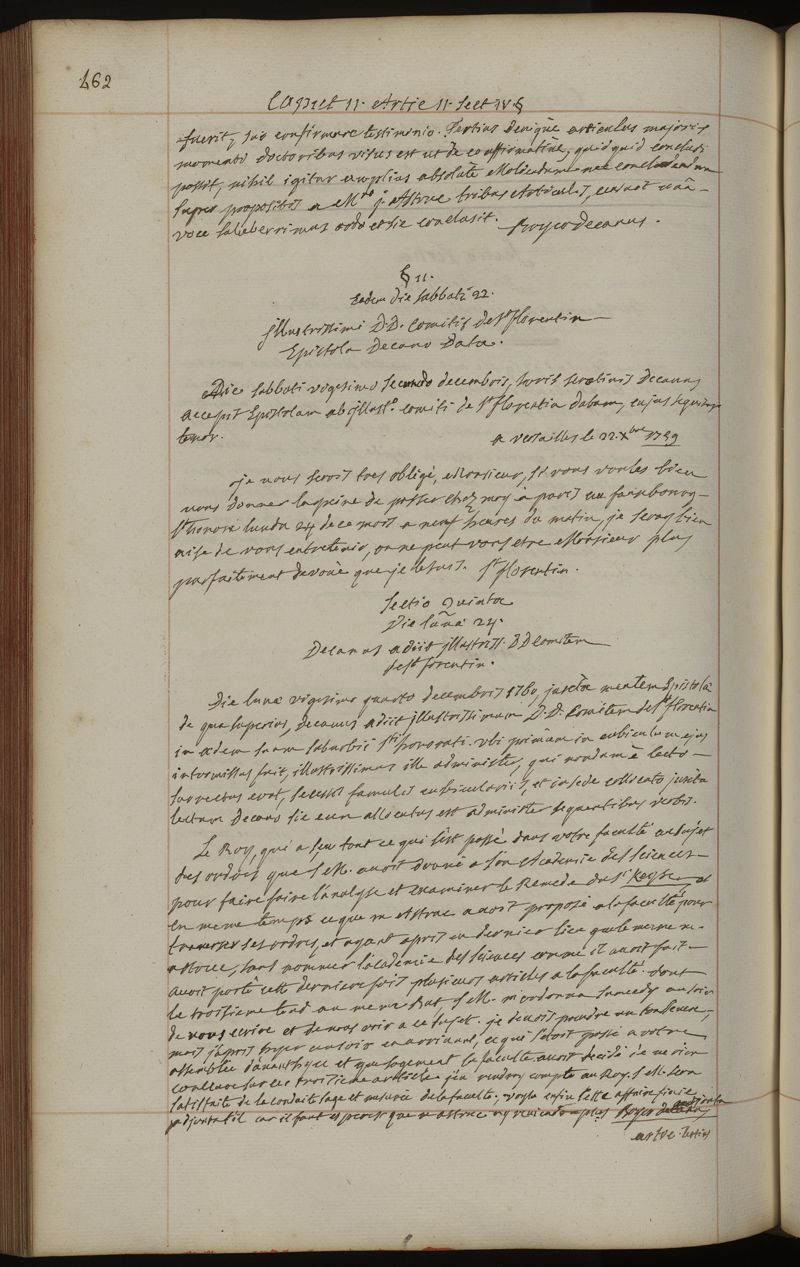 462
Caput 11. Artic 11. Sect IV. §
fuerit, suo confirmare testimonio. Tertius denique articulus majoris
momenti doctoribus visus est ut de eo affirmative, quidquid concludi
possit, nihil igitur amplius absolute Molendum nec concludendum
super propositis a Mro j. Astruc tribus Articulis, censuit unâ
voce saluberrimus ordo et sic conclusit. Boyer decanus.
§ 11.
Eadem die sabbati 22.
jllustrissimi D.D. Comitis de St florentin
Epistola Decano Data.
Die sabbati vigesimo secundo decembris, horis serotinis decanus
accepit Epistolam ab jllustro. comiti de St florentin datam, cujus sequitur
tenor.
a versailles le 22. Xbre 1759
je vous serois tres obligé, Monsieur, si vous voules bien
vous donner la peine de passer chez moy à paris au fauxbourg
St honoré lundy 24 de ce mois a neuf heures du matin, je seray bien
aise de vous entretenir, on ne peut vous etre Monsieur plus
parfaitement devoué que je le suis. St florentin.
Sectio Quinta
Die lunâ 24.
Decanus adiit jllustriss. D D Comitem
de St florentin.
Die lunæ vigesimo quarto decembris 1760, juxta mentem Epistolæ
de qua superius, Decanus adiit jllustrissimum D.D. Comitem de St florentin
in ædem suam suburbii Sti honorati. Ubi primum in cubiculum ejus
intromissus fuit, illustrissimus ille administer, qui nondum è lecto
surrectus erat, secessis famulis cubiculariis, et in sede collocato juxta
lectum Decano sic eum allocutus est administer sequentibus verbis.
Le Roy, qui a sçu tout ce qui s'est passé dans votre faculté au sujet
des ordres que S M. avoit donné a son Academie des Sciences
pour faire faire l'analyse et examiner le Remede du Sr Keyser et
en meme temps ce que m Astruc avoit proposé a la faculté pour
traverser ses ordres, et ayant apris en dernier lieu que le meme m.
astruc, sans nommer l'academie des sciences comme il avoit fait
avoit porté cette derniere fois plusieurs articles a la faculté. dont
le troisieme tend au meme but S M. m'ordonna samedy au soir
de vous ecrire et de vous voir a ce sujet. je devois prendre un ton severe,
mais j'apris hyer au soir en arrivant, ce qui s'etoit passé a votre
assemblée d'avanthyer et que sagement la faculté avoit decidé de ne rien
conclure sur ce troisieme article j'en rendray compte au Roy. S M. sera
satisfaite de la conduite sage et mesurée de la faculté, voyla enfin cette affaire finie
adjouta til car il faut esperer que m astruc n'y reviendra plus Boyer decanus